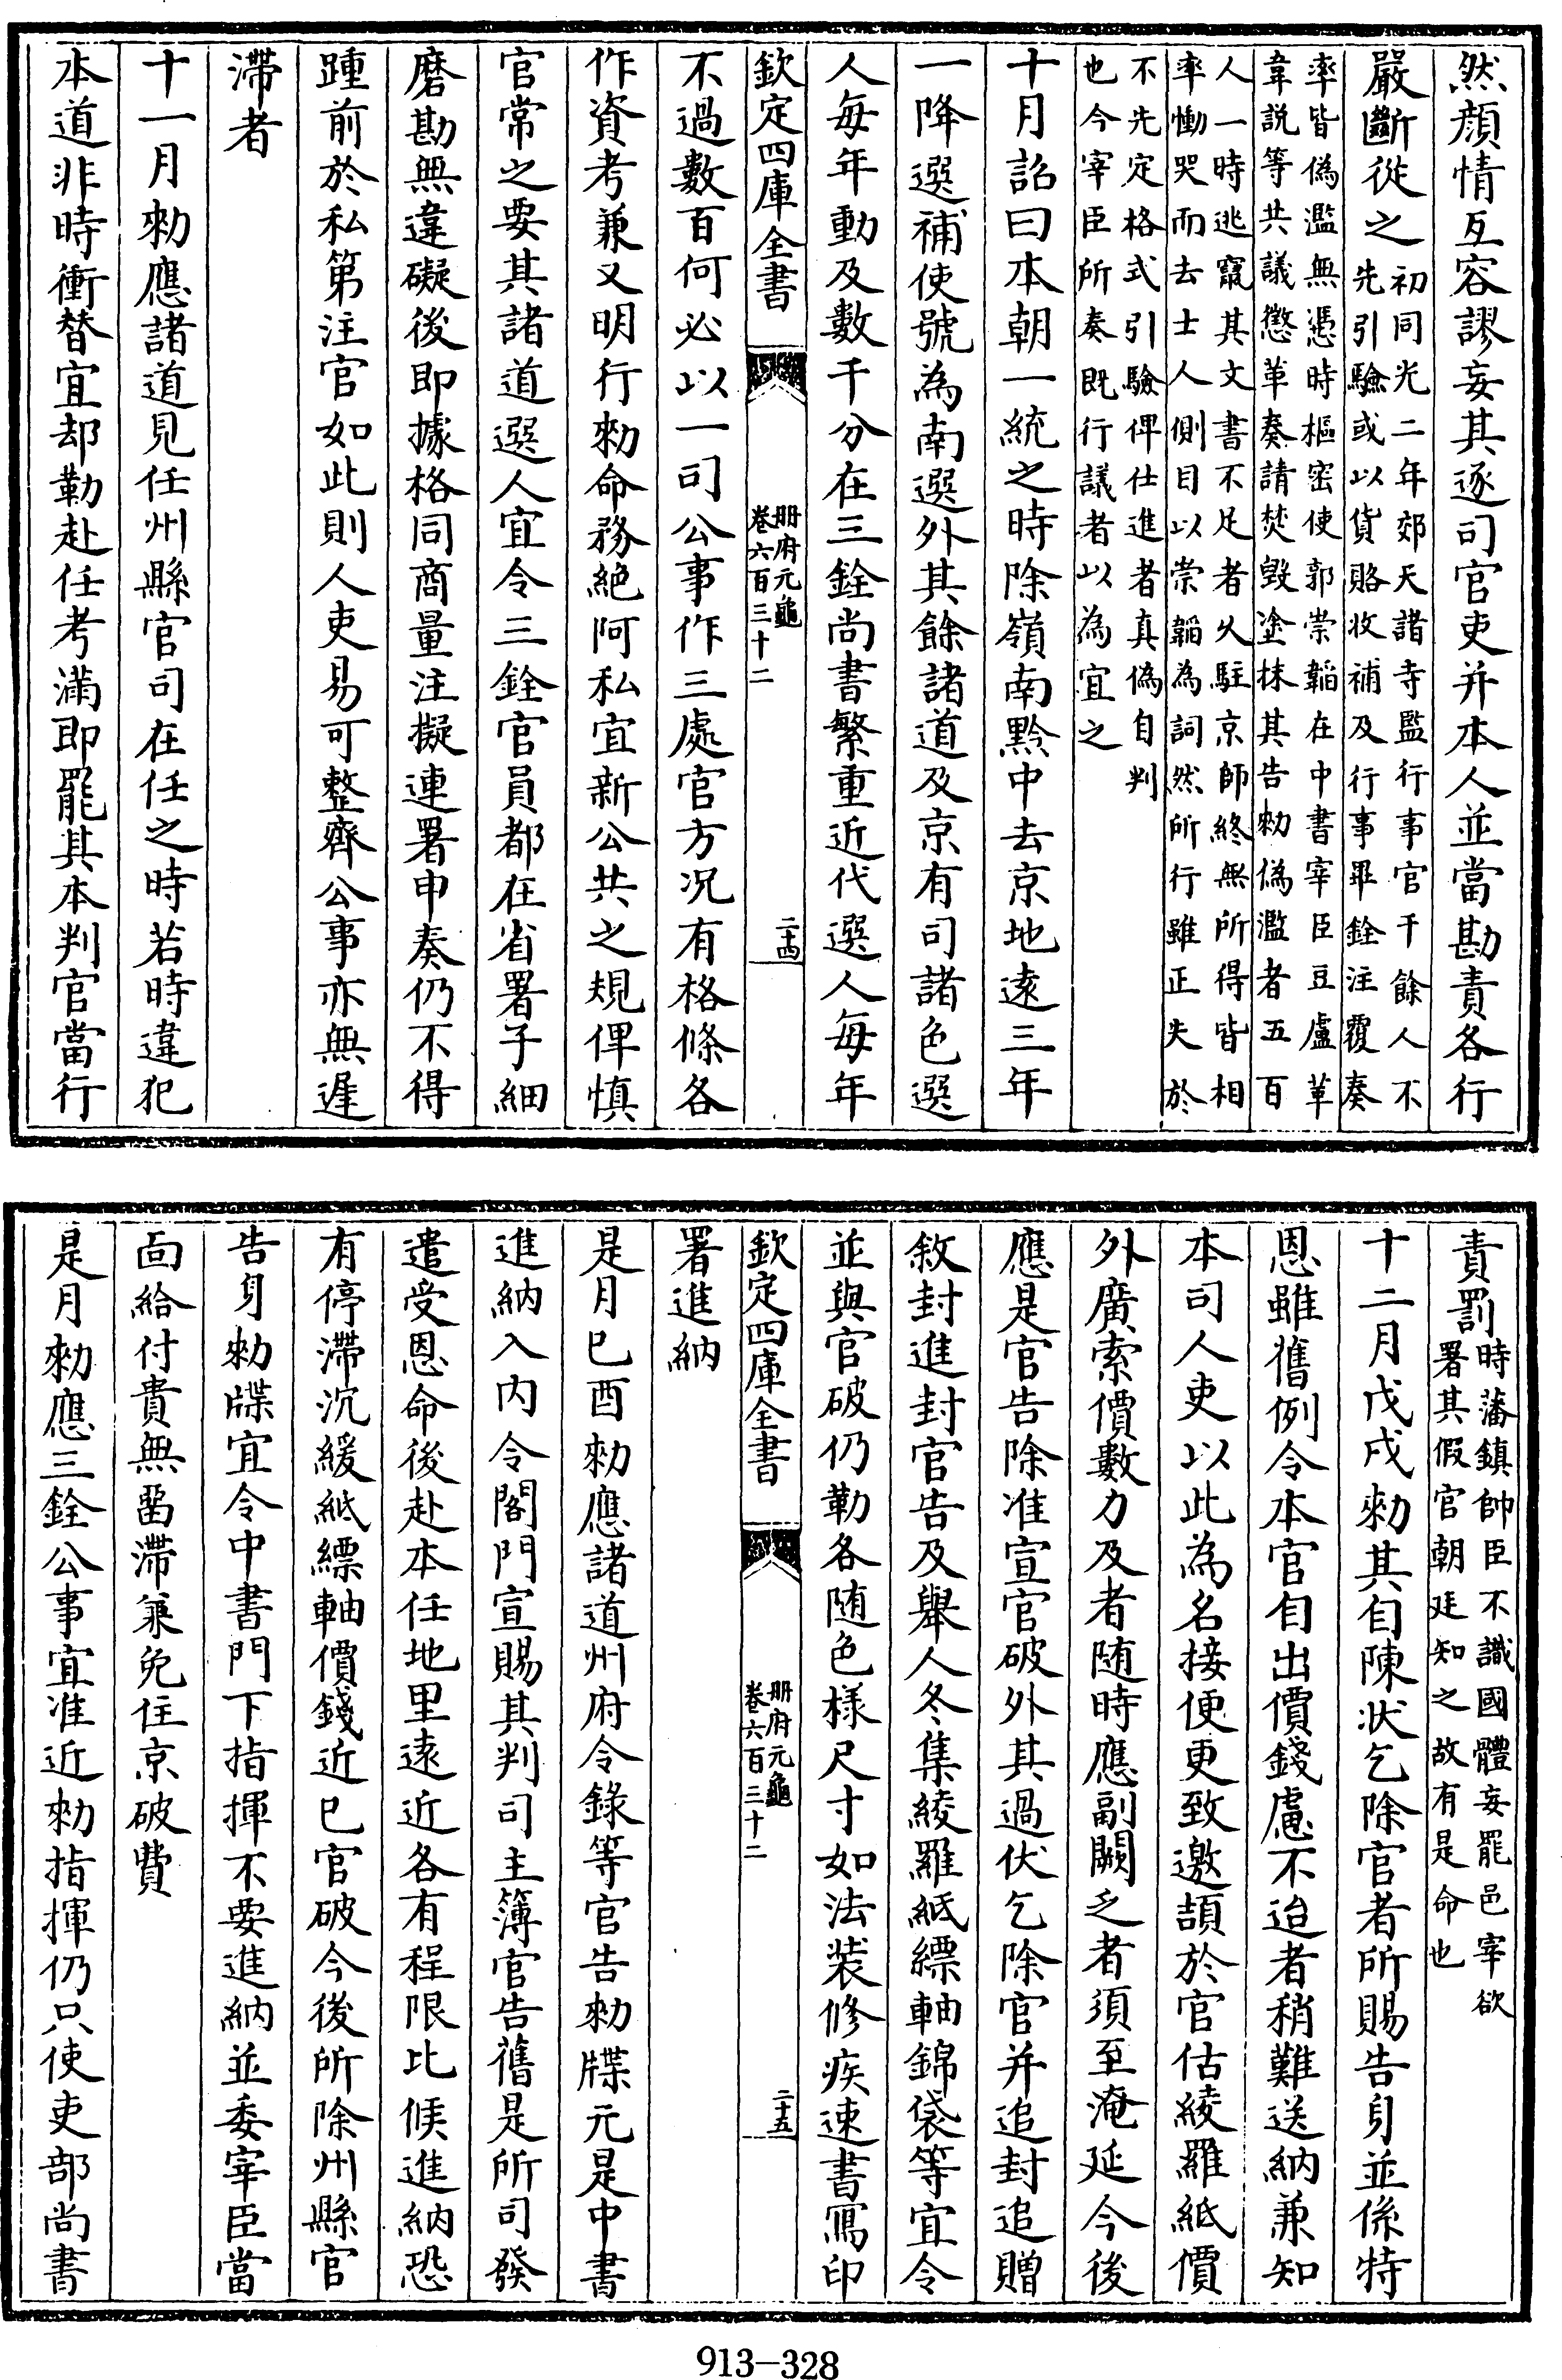 然顔情互容謬妄其逐司官吏并本人並當勘責各行
嚴斷從之
初同光二年郊天諸寺監行事官千餘人不
先引驗或以貨賂收補及行事畢銓注覆奏
率皆偽濫無憑時樞宻使郭崇韜在中書宰臣豆盧革
韋説等共議懲革奏請焚毁塗抹其告勑偽濫者五百
人一時逃竄其文書不足者乆駐京師終無所得皆相
率慟哭而去士人側目以崇韜為詞然所行雖正失於
不先定格式引驗俾仕進者真偽自判
也今宰臣所奏既行議者以為宜之
十月詔曰本朝一統之時除嶺南黔中去京地遠三年
一降選補使號為南選外其餘諸道及京有司諸色選
人每年動及數千分在三銓尚書繁重近代選人每年
欽定四庫全書
册府元龜
卷六百三十二
二十四
不過數百何必以一司公事作三處官方况有格條各
作資考兼又明行勑命務絶阿私宜新公共之規俾慎
官常之要其諸道選人宜令三銓官員都在省署子細
磨勘無違礙後即據格同商量注擬連署申奏仍不得
踵前於私第注官如此則人吏易可整齊公事亦無遲
滯者
十一月勑應諸道見任州縣官司在任之時若時違犯
本道非時衝替宜却勒赴任考滿即罷其本判官當行
責罰
時藩鎮帥臣不識國體妄罷邑宰欲
署其假官朝廷知之故有是命也
十二月戊戌勑其自陳狀乞除官者所賜告身並係特
恩雖舊例令本官自出價錢慮不迨者稍難送納兼知
本司人吏以此為名接便更致邀頡於官估綾羅紙價
外廣索價數力及者随時應副闕乏者須至淹延今後
應是官告除准宣官破外其過伏乞除官并追封追贈
敘封進封官告及舉人冬集綾羅紙縹軸錦袋等宜令
並與官破仍勒各随色様尺寸如法装修疾速書寫印
欽定四庫全書
册府元龜
卷六百三十二
二十五
署進納
是月已酉勑應諸道州府令錄等官告勑牒元是中書
進納入内令閤門宣賜其判司主簿官告舊是所司發
遣受恩命後赴本任地里遠近各有程限比候進納恐
有停滯沉緩紙縹軸價錢近已官破今後所除州縣官
告身勑牒宜令中書門下指揮不要進納並委宰臣當
面給付貴無留滯兼免住京破費
是月勑應三銓公事宜准近勑指揮仍只使吏部尚書
913-328